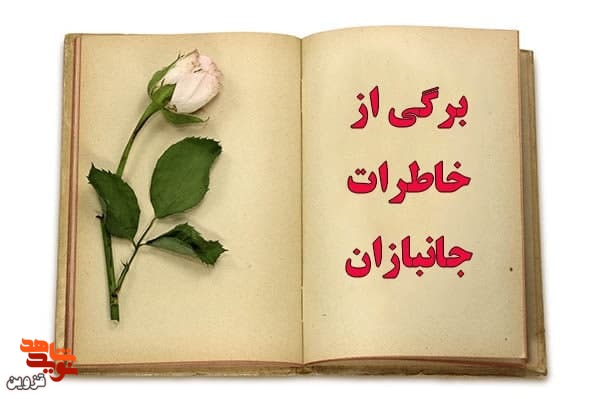 برگی از
خاطرات
جانبازان
نوید شاهد
قزوین